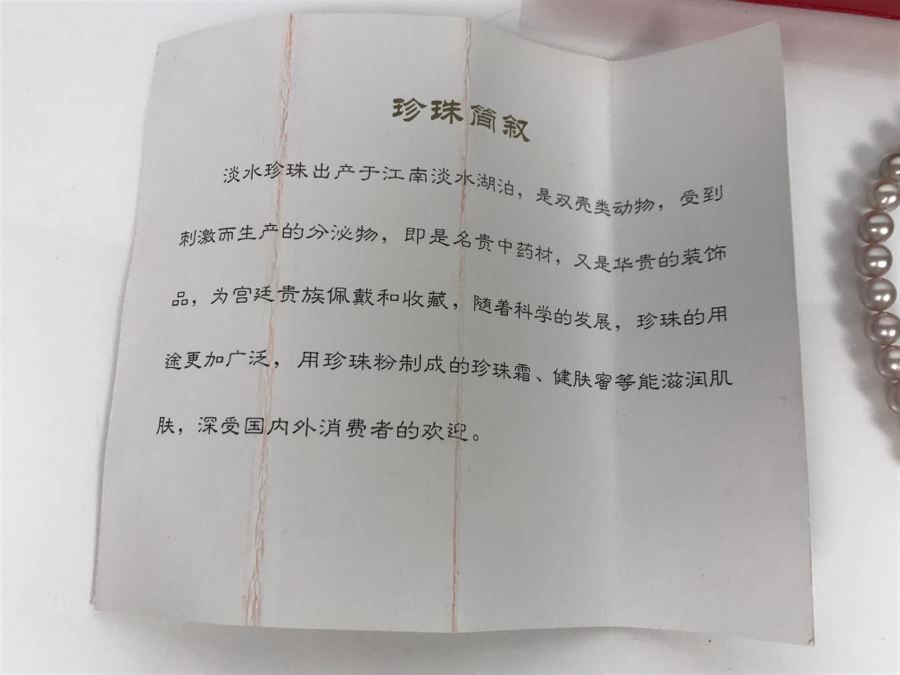 珍珠简叙
淡水珍珠出产于江南淡水湖泊，是双壳类动物，受到
刺激而生产的分泌物，即是名贵中药材，又是华贵的装饰
品，为宫廷贵族佩戴和收藏，随着科学的发展，珍珠的用
途更加广泛，用珍珠粉制成的珍珠霜、健肤蜜等能滋润肌
肤，深受国内外消费者的欢迎。